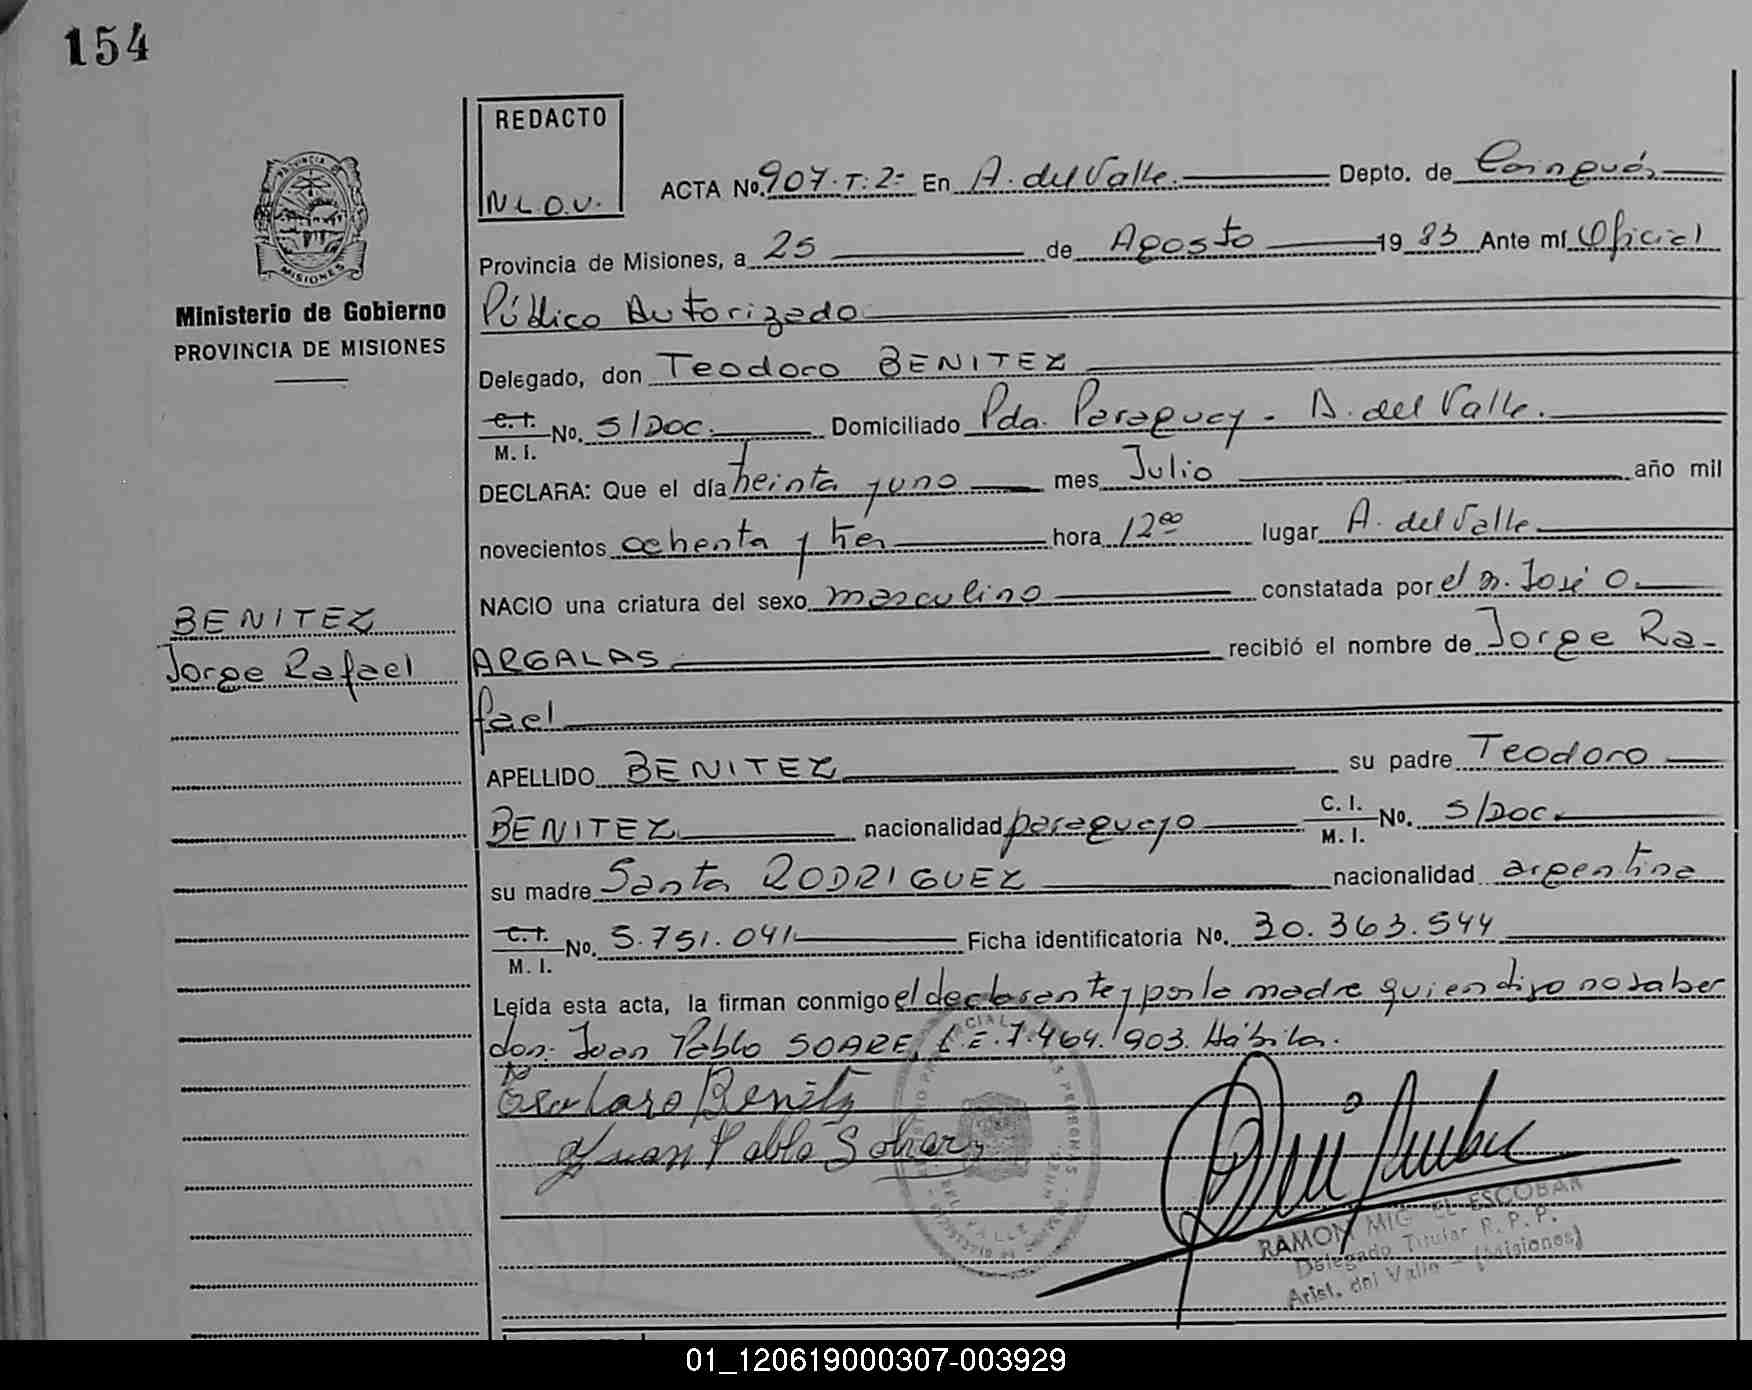 154
REDACTO
N.L.D.V.
ACTA No. 907.T.2- En A. del Valle. Depto. de Cainguás
Provincia de Misiones, a 25 de Agosto 1983 Ante mí Oficial
Público Autorizado
PROVINCIA DE MISIONES
Ministerio de Gobierno
PROVINCIA DE MISIONES
Delegado, don Teodoro BENITEZ
C. I. M. I. No. S/Doc. Domiciliado Pda. Paraguay - A. del Valle.
DECLARA: Que el día treinta y uno mes Julio año mil
novecientos ochenta y tres hora 12 00 lugar A. del Valle
NACIO una criatura del sexo masculino constatada por el Dr. José O.
BENITEZ
Jorge Rafael
ARGALAS recibió el nombre de Jorge Ra-
fael
APELLIDO BENITEZ su padre Teodoro
BENITEZ nacionalidad paraguayo C. I. M. I. No. S/Doc.
su madre Santa RODRIGUEZ nacionalidad argentina
C. I. M. I. No. 5.751.041 Ficha identificatoria No. 30.363.544
Leída esta acta, la firman conmigo el declarante y por la madre quien dijo no saber
don: Juan Pablo SOARE, L.E. 7.464.903. Hábiles.
Benitz
Juan Pablo
RAMON MIGUEL ESCOBAR
Delegado Titular R. P. P.
Arist. del Valle - (Misiones)
01_120619000307-003929